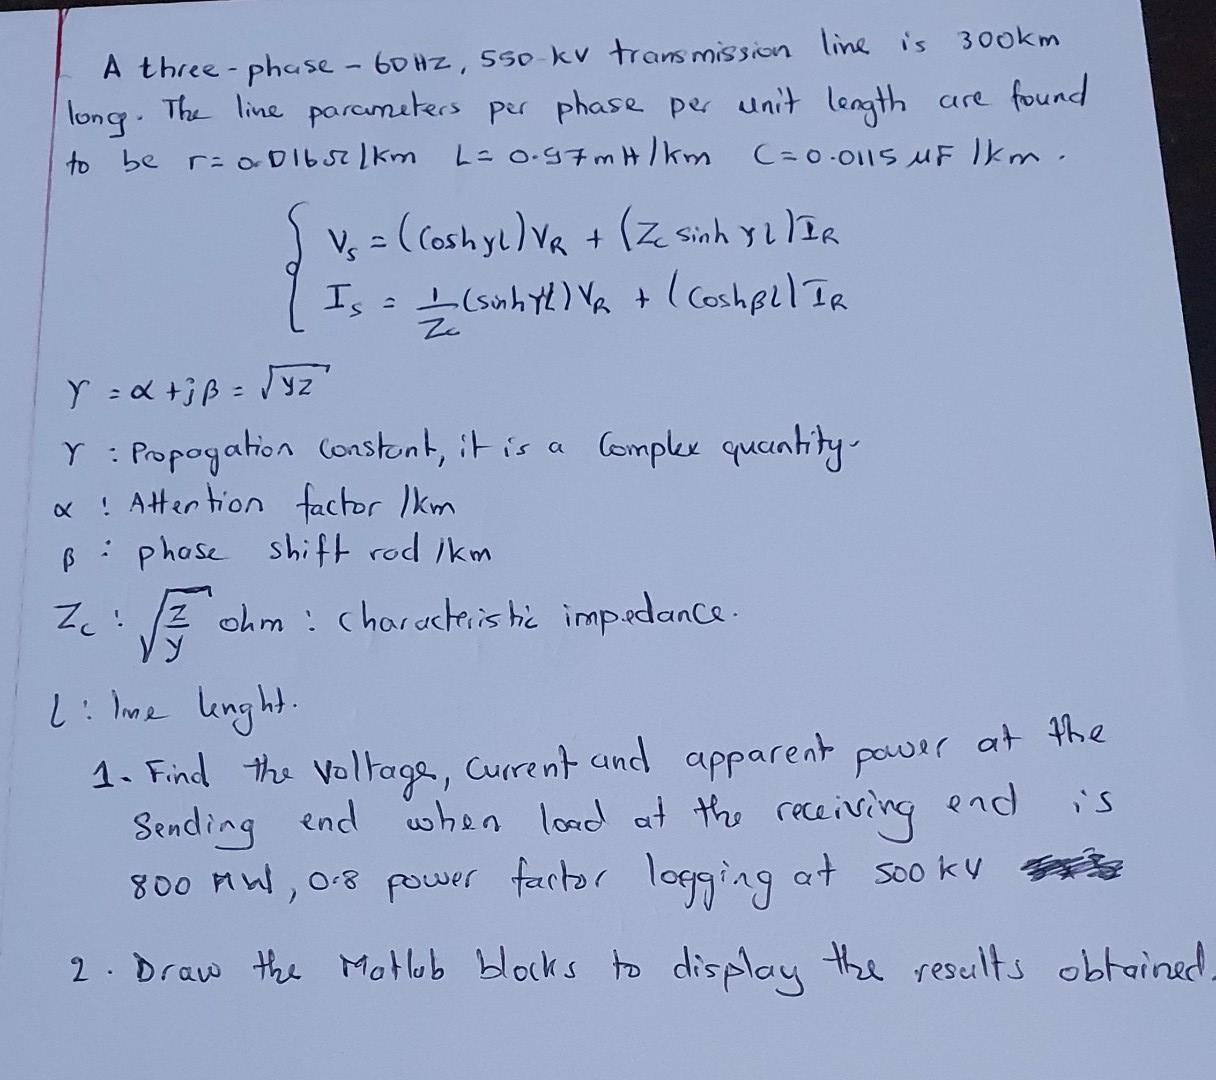 A three-phase - 60HZ, 550-kV transmission line is 300km
long. The line parameters per phase per unit length are found
to be r= 0.016Ω/km L= 0.97mH/km C=0.0115 μF /km.
Vs = (Coshγl)VR + (Zc sinh γl)IR
Is = 1/Zc (sinhγl)VR + (Coshβl)IR
γ = α +jβ = √yz
γ : Propogation Constant, it is a Complex quantity.
α : Attention factor /km
β : phase shift rad /km
Zc : √z/y ohm : Characteristic impedance.
l : line lenght.
1. Find the Voltage, Current and apparent power at the
Sending end when load at the receiving end is
800 MW, 0.8 power factor logging at 500 kV
2. Draw the Matlab blocks to display the results obtained.